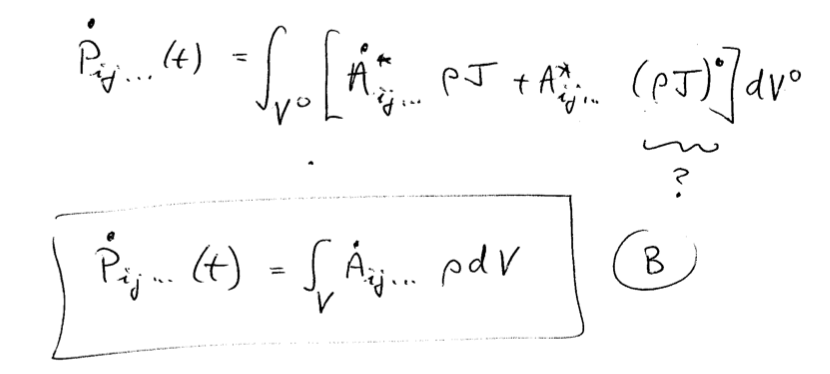 Ṗij...(t) = ∫V⁰ [Ȧ*ij... ρJ + A*ij... (ρJ)˙] dV⁰
?
Ṗij...(t) = ∫V Ȧij... ρdV
B